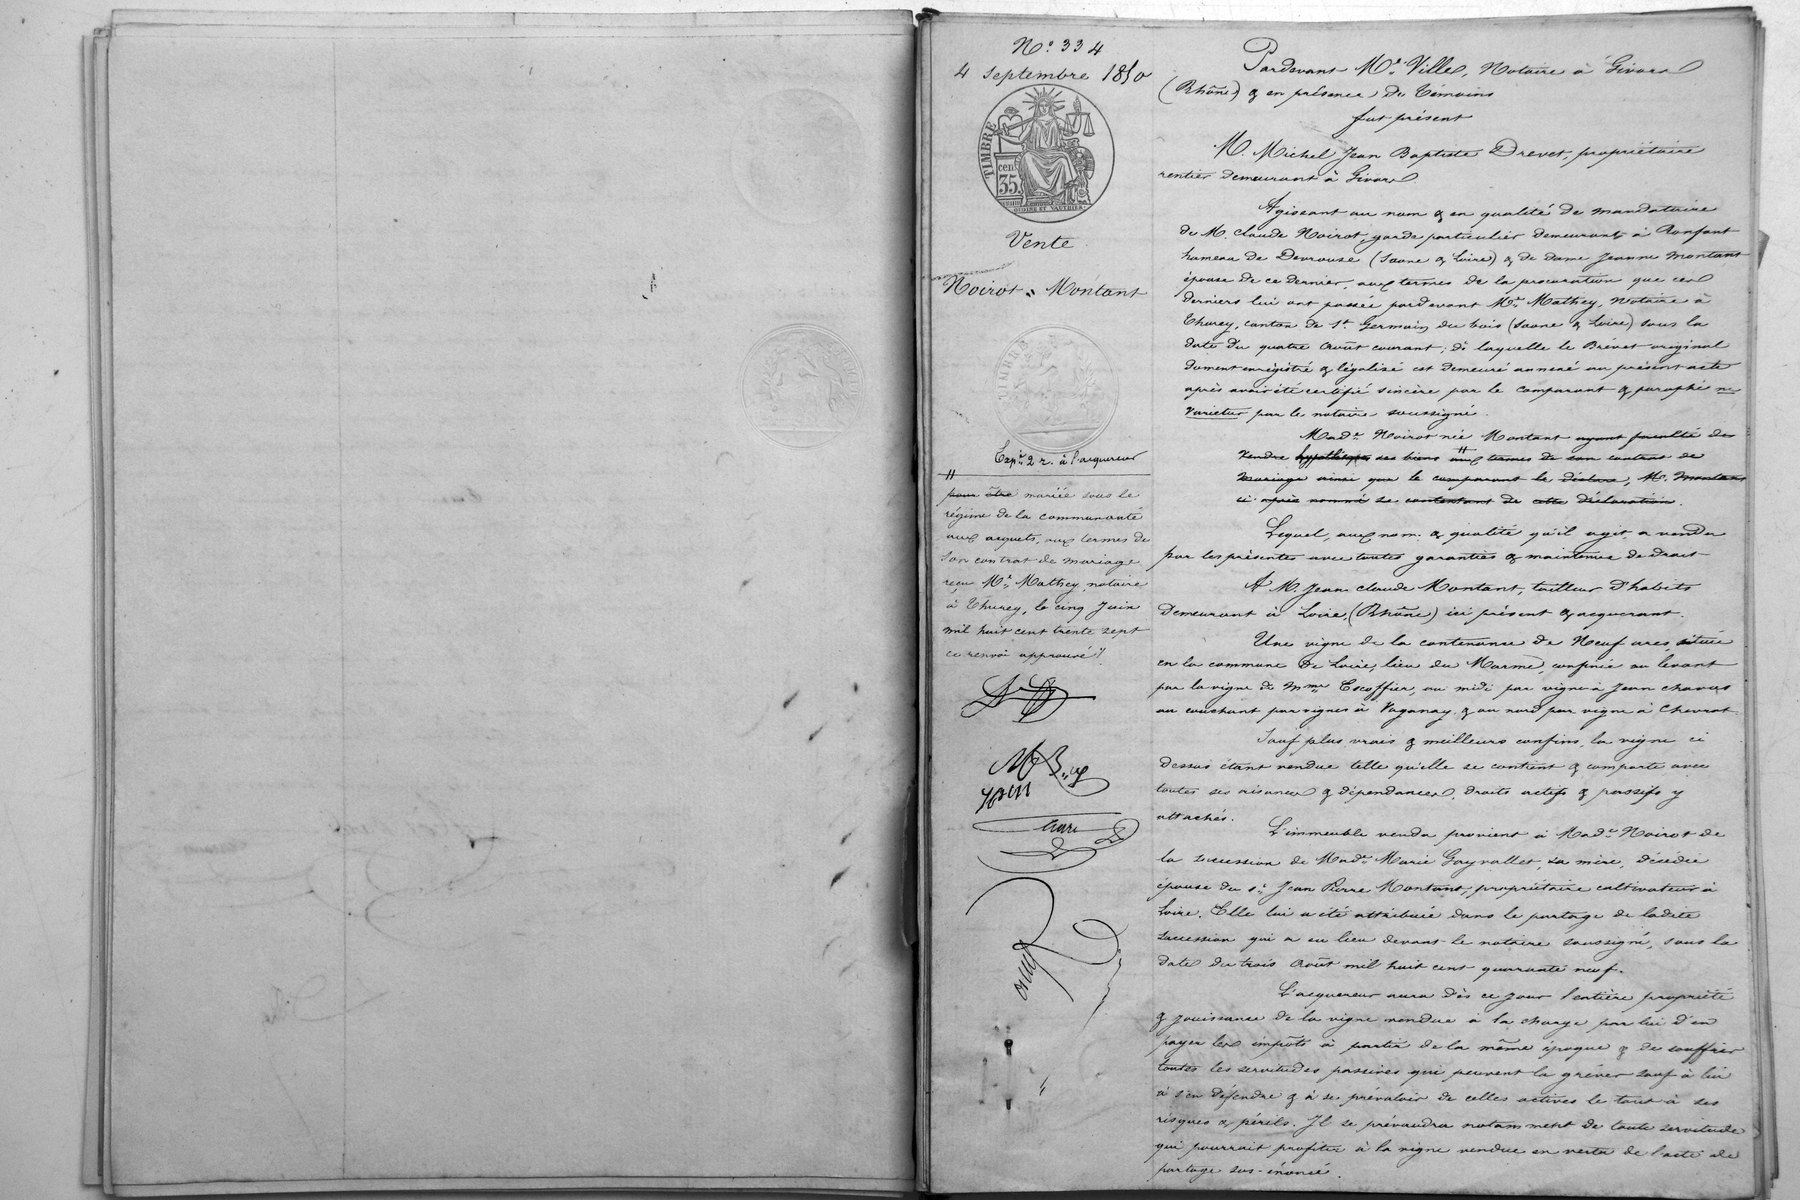 N.º 334
4 septembre 1850
TIMBRE
cen
35.
OUDINE ET VAUTHIER
Vente
Noirot „ Montant
TIMBRE
Expn 2 r. à l'acquereur
//
pour être mariée sous le
régime de la communauté
aux acquets, aux termes de
son contrat de mariage
reçu Me. Mathey, notaire
à Thurey, le cinq Juin
mil huit cent trente sept
ce renvoi approuvé //
Pardevant Me. Ville, Notaire à Givors
(Rhône) & en présence de Témoins
fut présent
M. Michel Jean Baptiste Drevet, propriétaire
rentier demeurant à Givors
Agissant au nom & en qualité de mandataire
de M. Claude Noirot, garde particulier demeurant à
hameau de Devrouse (Saone & Loire) & de Dame Jeanne Montant
épouse de ce dernier, aux termes de la procuration que ces
derniers lui ont passée pardevant Me. Mathey, Notaire à
Thurey, canton de St. Germain du bois (Saone & Loire) sous la
date du quatre Août courant, de laquelle le Brévet original
dument enregistré & légalisé est demeuré annexé au présent acte
après avoir été certifié sincère par le comparant & paraphé ne
varietur par le notaire soussigné.
Made. Noirot née Montant ayant faculté de
vendre hypothéquer ses biens // aux termes de son contrat de
mariage ainsi que le comparant le déclare, Mr. Montant
ci-après nommé se contentant de cette déclaration.
Lequel, aux nom & qualité qu'il agit, a vendu
par les présentes avec toutes garanties & maintenue de droit
A M. Jean Claude Montant, tailleur d'habits
demeurant à Loire, (Rhône) ici présent & acquerant.
Une vigne de la contenance de Neuf ares, située
en la commune de Loire, lieu du Marme, confinée au levant
par la vigne de Mme. Escoffier, au midi par vigne à Jean
au couchant par vignes à Vaganay & au nord par vigne à Chevrot
Sauf plus vrais & meilleurs confins, la vigne ci
dessus étant vendue telle qu'elle se contient & comporte avec
toutes ses aisances & dépendances, droits actifs & passifs y
attachés.
L'immeuble vendu provient à Made. Noirot de
la succession de Made. Marie Gayvallet, sa mère, décédée
épouse du sr. Jean Pierre Montant, propriétaire cultivateur à
Loire. Elle lui a été attribuée dans le partage de ladite
succession qui a eu lieu devant le notaire soussigné, sous la
date du trois Août mil huit cent quarante neuf.
L'acquereur aura dès ce jour l'entière propriété
& jouissance de la vigne vendue à la charge par lui d'en
payer les impôts à partir de la même époque & de souffrir
toutes les servitudes passives qui peuvent la gréver sauf à lui
à s'en défendre & à se prévaloir de celles actives le tout à ses
risques & périls. Il se prévaudra notamment de toute servitude
qui pourrait profiter à la vigne vendue en vertu de l'acte de
partage sus-énoncé.